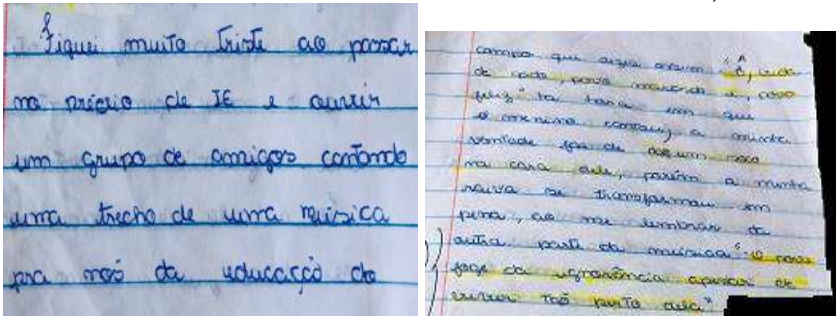 Fiquei muito triste ao passar
no prédio de IE e ouvir
um grupo de amigos cantando
uma trecho de uma música
pra nós da educação do
campo que dizia assim "Ê, vida
de gado, povo marcado e, povo
feliz" na hora em que
o menino cantou, a minha
vontade foi de dar um soco
na cara dele, porém a minha
raiva se transformou em
pena, ao me lembrar da
outra parte da música "o povo
foge da ignorância apesar de
viver tão perto dela"